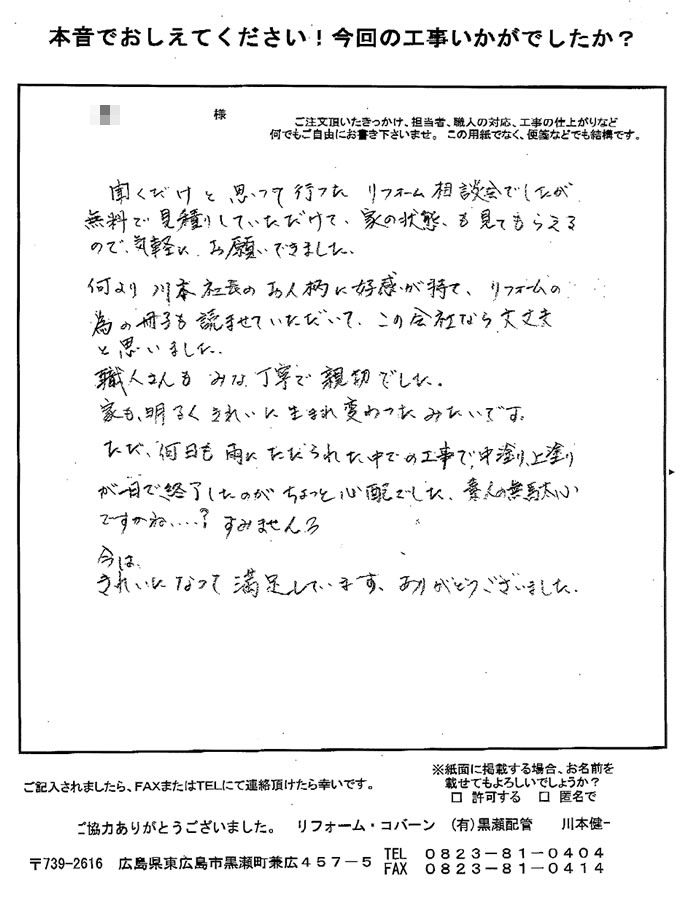 本音でおしえてください！今回の工事いかがでしたか？
様
ご注文頂いたきっかけ、担当者、職人の対応、工事の仕上がりなど
何でもご自由にお書き下さいませ。この用紙でなく、便箋などでも結構です。
聞くだけと思って行った リフォーム相談会でしたが
無料で見積りしていただけて、家の状態、も見てもらえる
ので、気軽に お願いできました。
何より 川本社長の お人柄に好感が持て、リフォームの
為の冊子も 読ませていただいて、この会社なら大丈夫
と思いました。
職人さんも みな丁寧で 親切でした。
家も、明るく きれいに 生まれ変わったみたいです。
ただ、何日も 雨に たたられた中での工事で、中塗り、上塗り
が一日で終了したのが ちょっと心配でした、素人の
ですかね‥‥？ すみません
今は、
きれいになって 満足しています、ありがとうございました。
ご記入されましたら、FAXまたはTELにて連絡頂けたら幸いです。
※紙面に掲載する場合、お名前を
載せてもよろしいでしょうか？
□ 許可する □ 匿名で
ご協力ありがとうございました。 リフォーム・コバーン （有）黒瀬配管 川本健一
〒739-2616 広島県東広島市黒瀬町兼広４５７－５
TEL ０８２３－８１－０４０４
FAX ０８２３－８１－０４１４